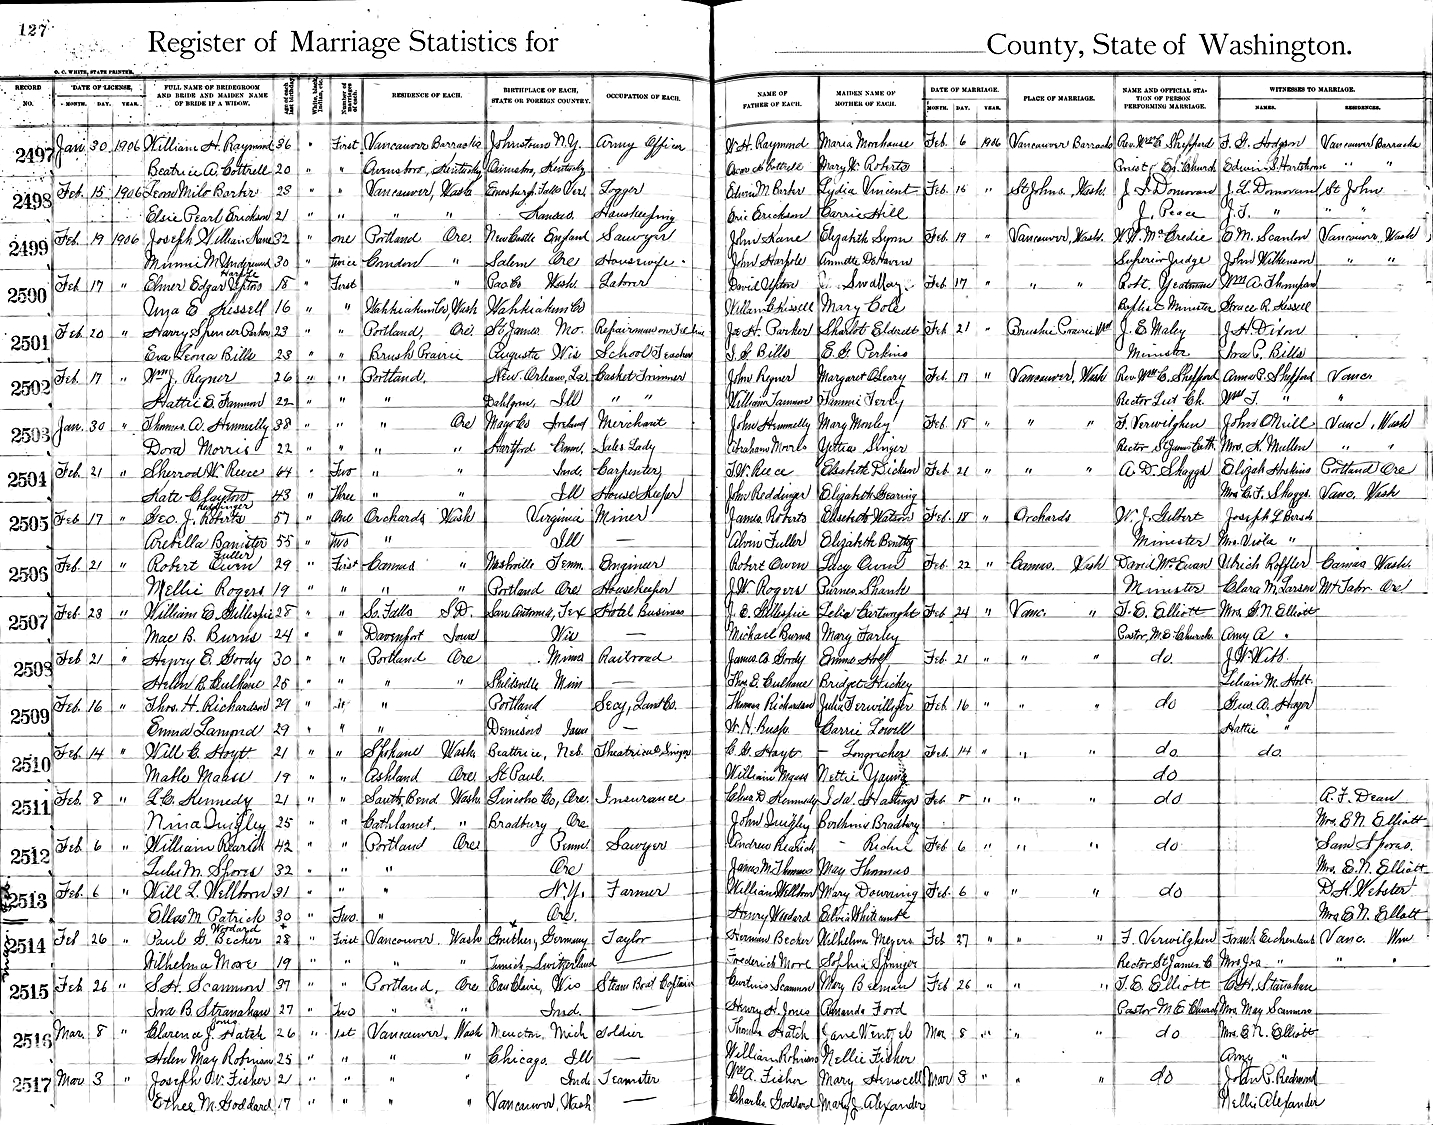 127
Register of Marriage Statistics for County, State of Washington.
O. C. WHITE, STATE PRINTER.
RECORD NO. DATE OF LICENSE, MONTH. DAY. YEAR. FULL NAME OF BRIDEGROOM AND BRIDE AND MAIDEN NAME OF BRIDE IF A WIDOW. Age of each last birthday. White, black, Indian, etc. Number of marriages of each. RESIDENCE OF EACH. BIRTHPLACE OF EACH, STATE OR FOREIGN COUNTRY. OCCUPATION OF EACH. NAME OF FATHER OF EACH. MAIDEN NAME OF MOTHER OF EACH. DATE OF MARRIAGE. MONTH. DAY. YEAR. PLACE OF MARRIAGE. NAME AND OFFICIAL STATION OF PERSON PERFORMING MARRIAGE. WITNESSES TO MARRIAGE. NAMES. RESIDENCES.
2497 Jan 30 1906 William H. Raymond 36 " First Vancouver Barracks Johnstown N.Y. Army Officer W. H. Raymond Maria Morehouse Feb 6 1906 Vancouver Barracks Rev. Wm C. Shepperd F. G. Hodgson Vancouver Barracks
Beatrice A. Cottrell 20 " " Owensboro, Kentucky Owensboro, Kentucky Mary H. Roberts Priest Ep. Church Edwin S. Hartshorn " "
2498 Feb. 15 1906 Leon Milo Barker 28 " " Vancouver, Wash Enosburg Falls Ver. Logger Edwin M. Barker Lydia Vincent Feb 16 " St Johns, Wash. J. L. Donovan St John
Elsie Pearl Erickson 21 " " " " Kansas. Housekeeping Eric Erickson Carrie Hill J. Peace J. F. " " "
2499 Feb. 19 1906 Joseph William Kane 32 " one Portland Ore. New Castle England Sawyer John Kane Elizabeth Lyon Feb 19 " Vancouver, Wash. W. W. McCredie E. M. Scanlon Vancouver, Wash
Minnie M Underwood 30 " twice Condon " Salem Ore Housewife John Harpole Annette DeHaven Superior Judge John Wilkinson " "
Harpole
2500 Feb 17 " Elmer Edgar Upton 18 " First Pac Co Wash. Laborer David Upton Swallay Feb 17 " " " Robt. Yeatman Wm A. Thompson
E Kissell 16 " " Wahkiakum Co, Wash Wahkiakum Co William C Kissell Mary Cole Minister Grace R. Kissell
2501 Feb. 20 " Harry Spencer Parker 23 " " Portland, Ore. St James Mo. Jas H. Parker Feb 21 " Brush Prairie J. E. Maley J. H. Dixon
Eva Leona Bills 23 " " Brush Prairie Augusta Wis School Teacher S. G. Bills E. G. Perkins Minister Iva C. Bills
2502 Feb. 17 " Wm J. Regner 26 " " Portland. New Orleans, La Casket Trimmer John Regner Margaret OLeary Feb. 17 " Vancouver, Wash Rev. Wm C. Shepperd Anna P. Shepperd Vanc.
Hattie E. Tammon 22 " " " Dahlgren, Ill " " William Tammon Fannie Terry Wm F. " "
2503 Jan. 30 " Thomas A. Hennelly 38 " " " Ore Mayo Co Ireland Merchant John Hennelly Mary Monley Feb 18 " " " F. Verwilghen John ONeill Vanc, Wash
Dora Morris 22 " " " Hartford Conn. Sales Lady Abraham Morris Singer Rector St James Cath. Mrs. K. Mullen " "
2504 Feb. 21 " Sherrod W. Reece 64 " Two " " Ind. Carpenter J. W. Reece Elizabeth Dicken Feb 21 " " " A. D. Skaggs Elizah Hoskins Portland Ore
Kate Clayton 43 " Three " " Ill House Keeper John Reddinger Elizabeth Gearing Mrs C. F. Skaggs Vanc. Wash
Reddinger
2505 Feb 17 " Geo. J. Roberts 57 " One Orchards Wash Virginia Miner James Roberts Elizabeth Watson Feb. 18 " Orchards W. J. Gilbert Joseph L Bersch
Arebella Banister 55 " Two " Ill — Alvin Fuller Elizabeth Bentley Minister Mrs. Viola "
Fuller
2506 Feb. 21 " Robert Owen 29 " First Camas " Nashville Tenn. Engineer Robert Owen Lucy Owen Feb. 22 " Camas. Wash David McEwan Ulrich Roffler Camas Wash.
Mellie Rogers 19 " " " " Portland Ore Housekeeper J. W. Rogers Shank Minister Clara M. Larsen Mt Tabor Ore
2507 Feb 23 " William E. Gillespie 28 " " So. Falls S.D. San Antonio, Tex Hotel Business J. E. Gillespie Lelia Cartwright Feb 24 " Vanc. " T. E. Elliott Mrs. E. N. Elliott
Mae B. Burns 24 " " Davenport Iowa Wis — Michael Burns Mary Farley Pastor, M. E. Church. Amy A "
2508 Feb 21 " Henry E. Gordy 30 " " Portland Ore Minn Railroad James B. Gordy Emma Holf Feb. 21 " " " do. J. W. Webb
Helen B. Culhane 25 " " " " Minn Thos. E. Culhane Bridget Hickey Lilian M. Holt.
2509 Feb. 16 " Thos. H. Richardson 29 " " " Portland Thomas Richardson Julia Terwilliger Feb 16 " " " do Gus. A. Hager
Emma Lamond 29 " " " Denison Iowa — W. H. Busse Carrie Lowell Hattie "
2510 Feb 14 " Will C. Hoyt 21 " " Spokane Wash. Beatrice, Neb. Theatrical Singer C. G. Hoyt — Longnecker Feb 14 " " " do. do.
Mable Maass 19 " " Ashland Ore St Paul. William Maass Nettie Young do
2511 Feb. 8 " L. C. Kennedy 21 " " South Bend Wash. Lincoln Co, Ore. Insurance Kennedy Ida. Hastings Feb 8 " " " do A. F. Dean
Nina Quigley 25 " " Cathlamet. " Bradbury Ore John Quigley Bradbury Mrs. E. N. Elliott
2512 Feb 6 " William Rearick 42 " " Portland Ore Penn Sawyer Andrew Rearick Feb 6 " " " do Sam Spores.
Lulu M. Spores 32 " " " Ore James M. Thomas May Thomas Mrs. E. N. Elliott
2513 Feb. 6 " Will L. Wellborn 31 " " " N.Y. Farmer William Wellborn Mary Downing Feb 6 " " " do D. H. Webster
Ellas M. Patrick 30 " Two. " Ore. Henry Woodard Mrs E. N. Elliott
Woodard
2514 Feb 26 " Paul G. Becker 28 " First Vancouver. Wash Germany Taylor Herman Becker Wilhelma Meyers Feb 27 " " " F. Verwilghen Frank Eichenlaub Vanc. Wn
Wilhelma More 19 " " " " Switzerland — Frederich More Sophia Sprenger Rector St James C Mrs Jos " " "
2515 Feb 26 " S. H. Scammon 37 " " Portland, Ore Eau Claire, Wis Steam Boat Captain Curtinis Scammon Mary Beeman Feb 26 " " " T. E. Elliott C. H. Stranahan
Iva B. Stranahan 27 " Two " " Ind. — Henry H. Jones Amanda Ford Pastor M E Church Mrs. May Scammon
Jones
2516 Mar. 8 " Clarence J. Hatch 26 " 1st Vancouver, Wash Newton, Mich Soldier Thomas Hatch Jane Wentzel Mar 8 " " " do Mrs. E. N. Elliott
Helen May Rohman 25 " " " " Chicago. Ill — William Rohman Nellie Fisher Amy "
2517 Mar 3 " Joseph W. Fisher 21 " " " " Ind. Teamster Wm A. Fisher Mary Hinscell Mar 3 " " " do John P. Redmond
Ethel M. Goddard 17 " " " " Vancouver, Wash — Charles Goddard Mary J. Alexander Nellie Alexander